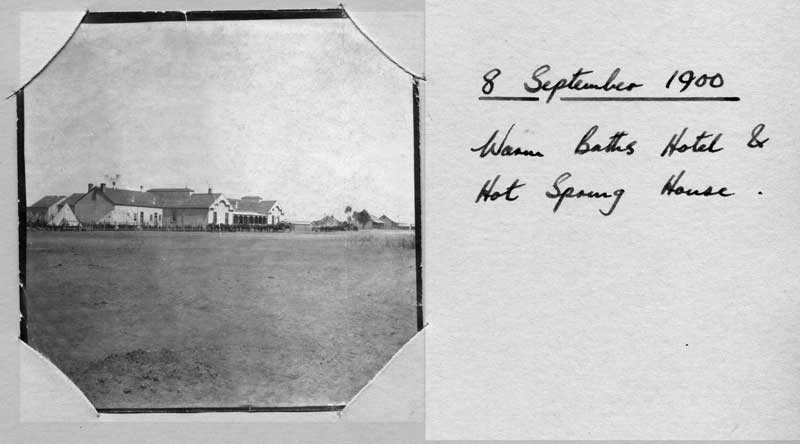 8 September 1900
Warm Baths Hotel &
Hot Spring House .